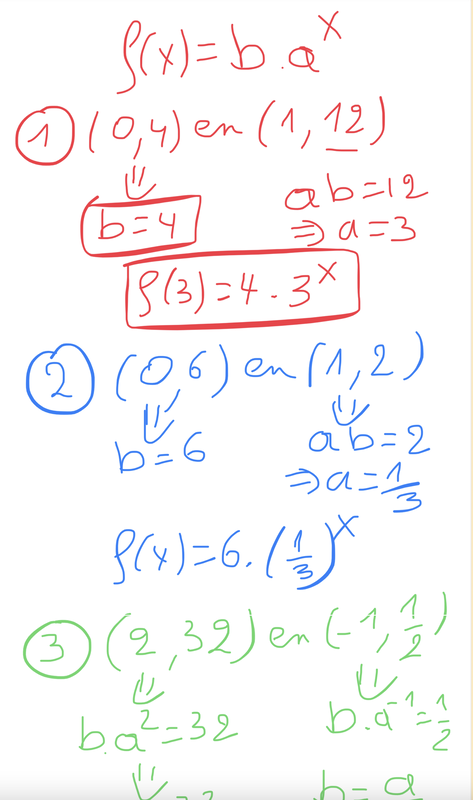 f(x)=b.a^x
① (0,4) en (1,12)
⇓
b=4 ab=12
⇒a=3
f(3)=4·3^x
② (0,6) en (1,2)
⇓ ⇓
b=6 ab=2
⇒a=1/3
f(x)=6·(1/3)^x
③ (2,32) en (-1,1/2)
⇓ ⇓
b.a²=32 b.a⁻¹=1/2
⇓ b=a